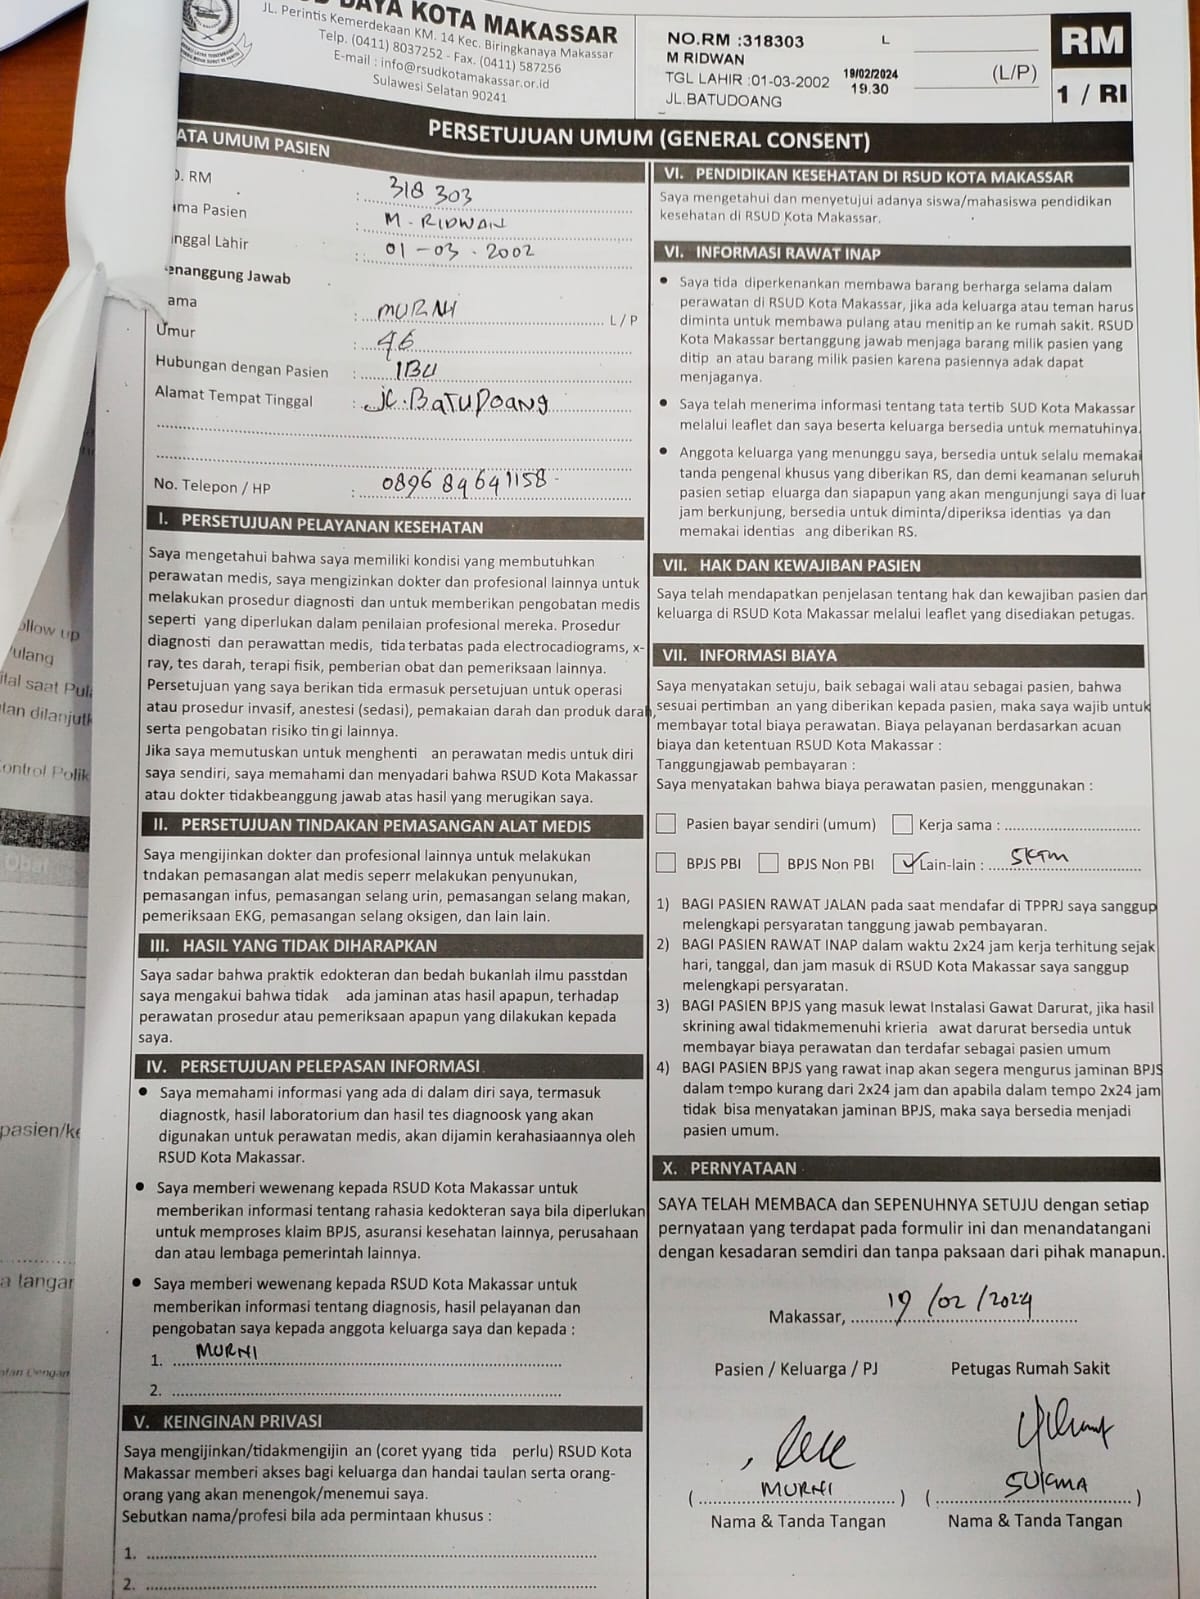 DAYA KOTA MAKASSAR
JL. Perintis Kemerdekaan KM. 14 Kec. Biringkanaya Makassar
Telp. (0411) 8037252 - Fax. (0411) 587256
E-mail : info@rsudkotamakassar.or.id
Sulawesi Selatan 90241
NO.RM :318303 L
M RIDWAN
TGL LAHIR :01-03-2002 19/02/2024
19.30
JL.BATUDOANG
(L/P)
RM
1 / RI
PERSETUJUAN UMUM (GENERAL CONSENT)
ATA UMUM PASIEN
. RM : 318 303
ma Pasien : M. RIDWAN
nggal Lahir : 01-03-2002
enanggung Jawab
ama : MURNI L / P
Umur : 46
Hubungan dengan Pasien : IBU
Alamat Tempat Tinggal : JL. BATUDOANG
No. Telepon / HP : 089689641158
I. PERSETUJUAN PELAYANAN KESEHATAN
Saya mengetahui bahwa saya memiliki kondisi yang membutuhkan
perawatan medis, saya mengizinkan dokter dan profesional lainnya untuk
melakukan prosedur diagnosti dan untuk memberikan pengobatan medis
seperti yang diperlukan dalam penilaian profesional mereka. Prosedur
diagnosti dan perawattan medis, tida terbatas pada electrocadiograms, x-
ray, tes darah, terapi fisik, pemberian obat dan pemeriksaan lainnya.
Persetujuan yang saya berikan tida ermasuk persetujuan untuk operasi
atau prosedur invasif, anestesi (sedasi), pemakaian darah dan produk darah,
serta pengobatan risiko tin gi lainnya.
Jika saya memutuskan untuk menghenti an perawatan medis untuk diri
saya sendiri, saya memahami dan menyadari bahwa RSUD Kota Makassar
atau dokter tidakbeanggung jawab atas hasil yang merugikan saya.
II. PERSETUJUAN TINDAKAN PEMASANGAN ALAT MEDIS
Saya mengijinkan dokter dan profesional lainnya untuk melakukan
tndakan pemasangan alat medis seperr melakukan penyunukan,
pemasangan infus, pemasangan selang urin, pemasangan selang makan,
pemeriksaan EKG, pemasangan selang oksigen, dan lain lain.
III. HASIL YANG TIDAK DIHARAPKAN
Saya sadar bahwa praktik edokteran dan bedah bukanlah ilmu passtdan
saya mengakui bahwa tidak ada jaminan atas hasil apapun, terhadap
perawatan prosedur atau pemeriksaan apapun yang dilakukan kepada
saya.
IV. PERSETUJUAN PELEPASAN INFORMASI
• Saya memahami informasi yang ada di dalam diri saya, termasuk
diagnostk, hasil laboratorium dan hasil tes diagnoosk yang akan
digunakan untuk perawatan medis, akan dijamin kerahasiaannya oleh
RSUD Kota Makassar.
• Saya memberi wewenang kepada RSUD Kota Makassar untuk
memberikan informasi tentang rahasia kedokteran saya bila diperlukan
untuk memproses klaim BPJS, asuransi kesehatan lainnya, perusahaan
dan atau lembaga pemerintah lainnya.
• Saya memberi wewenang kepada RSUD Kota Makassar untuk
memberikan informasi tentang diagnosis, hasil pelayanan dan
pengobatan saya kepada anggota keluarga saya dan kepada :
1. MURNI
2.
V. KEINGINAN PRIVASI
Saya mengijinkan/tidakmengijin an (coret yyang tida perlu) RSUD Kota
Makassar memberi akses bagi keluarga dan handai taulan serta orang-
orang yang akan menengok/menemui saya.
Sebutkan nama/profesi bila ada permintaan khusus :
1.
2.
VI. PENDIDIKAN KESEHATAN DI RSUD KOTA MAKASSAR
Saya mengetahui dan menyetujui adanya siswa/mahasiswa pendidikan
kesehatan di RSUD Kota Makassar.
VI. INFORMASI RAWAT INAP
• Saya tida diperkenankan membawa barang berharga selama dalam
perawatan di RSUD Kota Makassar, jika ada keluarga atau teman harus
diminta untuk membawa pulang atau menitip an ke rumah sakit. RSUD
Kota Makassar bertanggung jawab menjaga barang milik pasien yang
ditip an atau barang milik pasien karena pasiennya adak dapat
menjaganya.
• Saya telah menerima informasi tentang tata tertib SUD Kota Makassar
melalui leaflet dan saya beserta keluarga bersedia untuk mematuhinya.
• Anggota keluarga yang menunggu saya, bersedia untuk selalu memakai
tanda pengenal khusus yang diberikan RS, dan demi keamanan seluruh
pasien setiap eluarga dan siapapun yang akan mengunjungi saya di luar
jam berkunjung, bersedia untuk diminta/diperiksa identias ya dan
memakai identias ang diberikan RS.
VII. HAK DAN KEWAJIBAN PASIEN
Saya telah mendapatkan penjelasan tentang hak dan kewajiban pasien dan
keluarga di RSUD Kota Makassar melalui leaflet yang disediakan petugas.
VII. INFORMASI BIAYA
Saya menyatakan setuju, baik sebagai wali atau sebagai pasien, bahwa
sesuai pertimban an yang diberikan kepada pasien, maka saya wajib untuk
membayar total biaya perawatan. Biaya pelayanan berdasarkan acuan
biaya dan ketentuan RSUD Kota Makassar :
Tanggungjawab pembayaran :
Saya menyatakan bahwa biaya perawatan pasien, menggunakan :
Pasien bayar sendiri (umum) Kerja sama :
BPJS PBI BPJS Non PBI ✓ Lain-lain : SKTM
1) BAGI PASIEN RAWAT JALAN pada saat mendafar di TPPRJ saya sanggup
melengkapi persyaratan tanggung jawab pembayaran.
2) BAGI PASIEN RAWAT INAP dalam waktu 2x24 jam kerja terhitung sejak
hari, tanggal, dan jam masuk di RSUD Kota Makassar saya sanggup
melengkapi persyaratan.
3) BAGI PASIEN BPJS yang masuk lewat Instalasi Gawat Darurat, jika hasil
skrining awal tidakmemenuhi krieria awat darurat bersedia untuk
membayar biaya perawatan dan terdafar sebagai pasien umum
4) BAGI PASIEN BPJS yang rawat inap akan segera mengurus jaminan BPJS
dalam tempo kurang dari 2x24 jam dan apabila dalam tempo 2x24 jam
tidak bisa menyatakan jaminan BPJS, maka saya bersedia menjadi
pasien umum.
X. PERNYATAAN
SAYA TELAH MEMBACA dan SEPENUHNYA SETUJU dengan setiap
pernyataan yang terdapat pada formulir ini dan menandatangani
dengan kesadaran semdiri dan tanpa paksaan dari pihak manapun.
Makassar, 19/02/2024
Pasien / Keluarga / PJ Petugas Rumah Sakit
( MURNI ) ( SUKMA )
Nama & Tanda Tangan Nama & Tanda Tangan
ollow up
ulang
ital saat Pula
tan dilanjutk
ontrol Polik
Obat
pasien/ke
a tangan